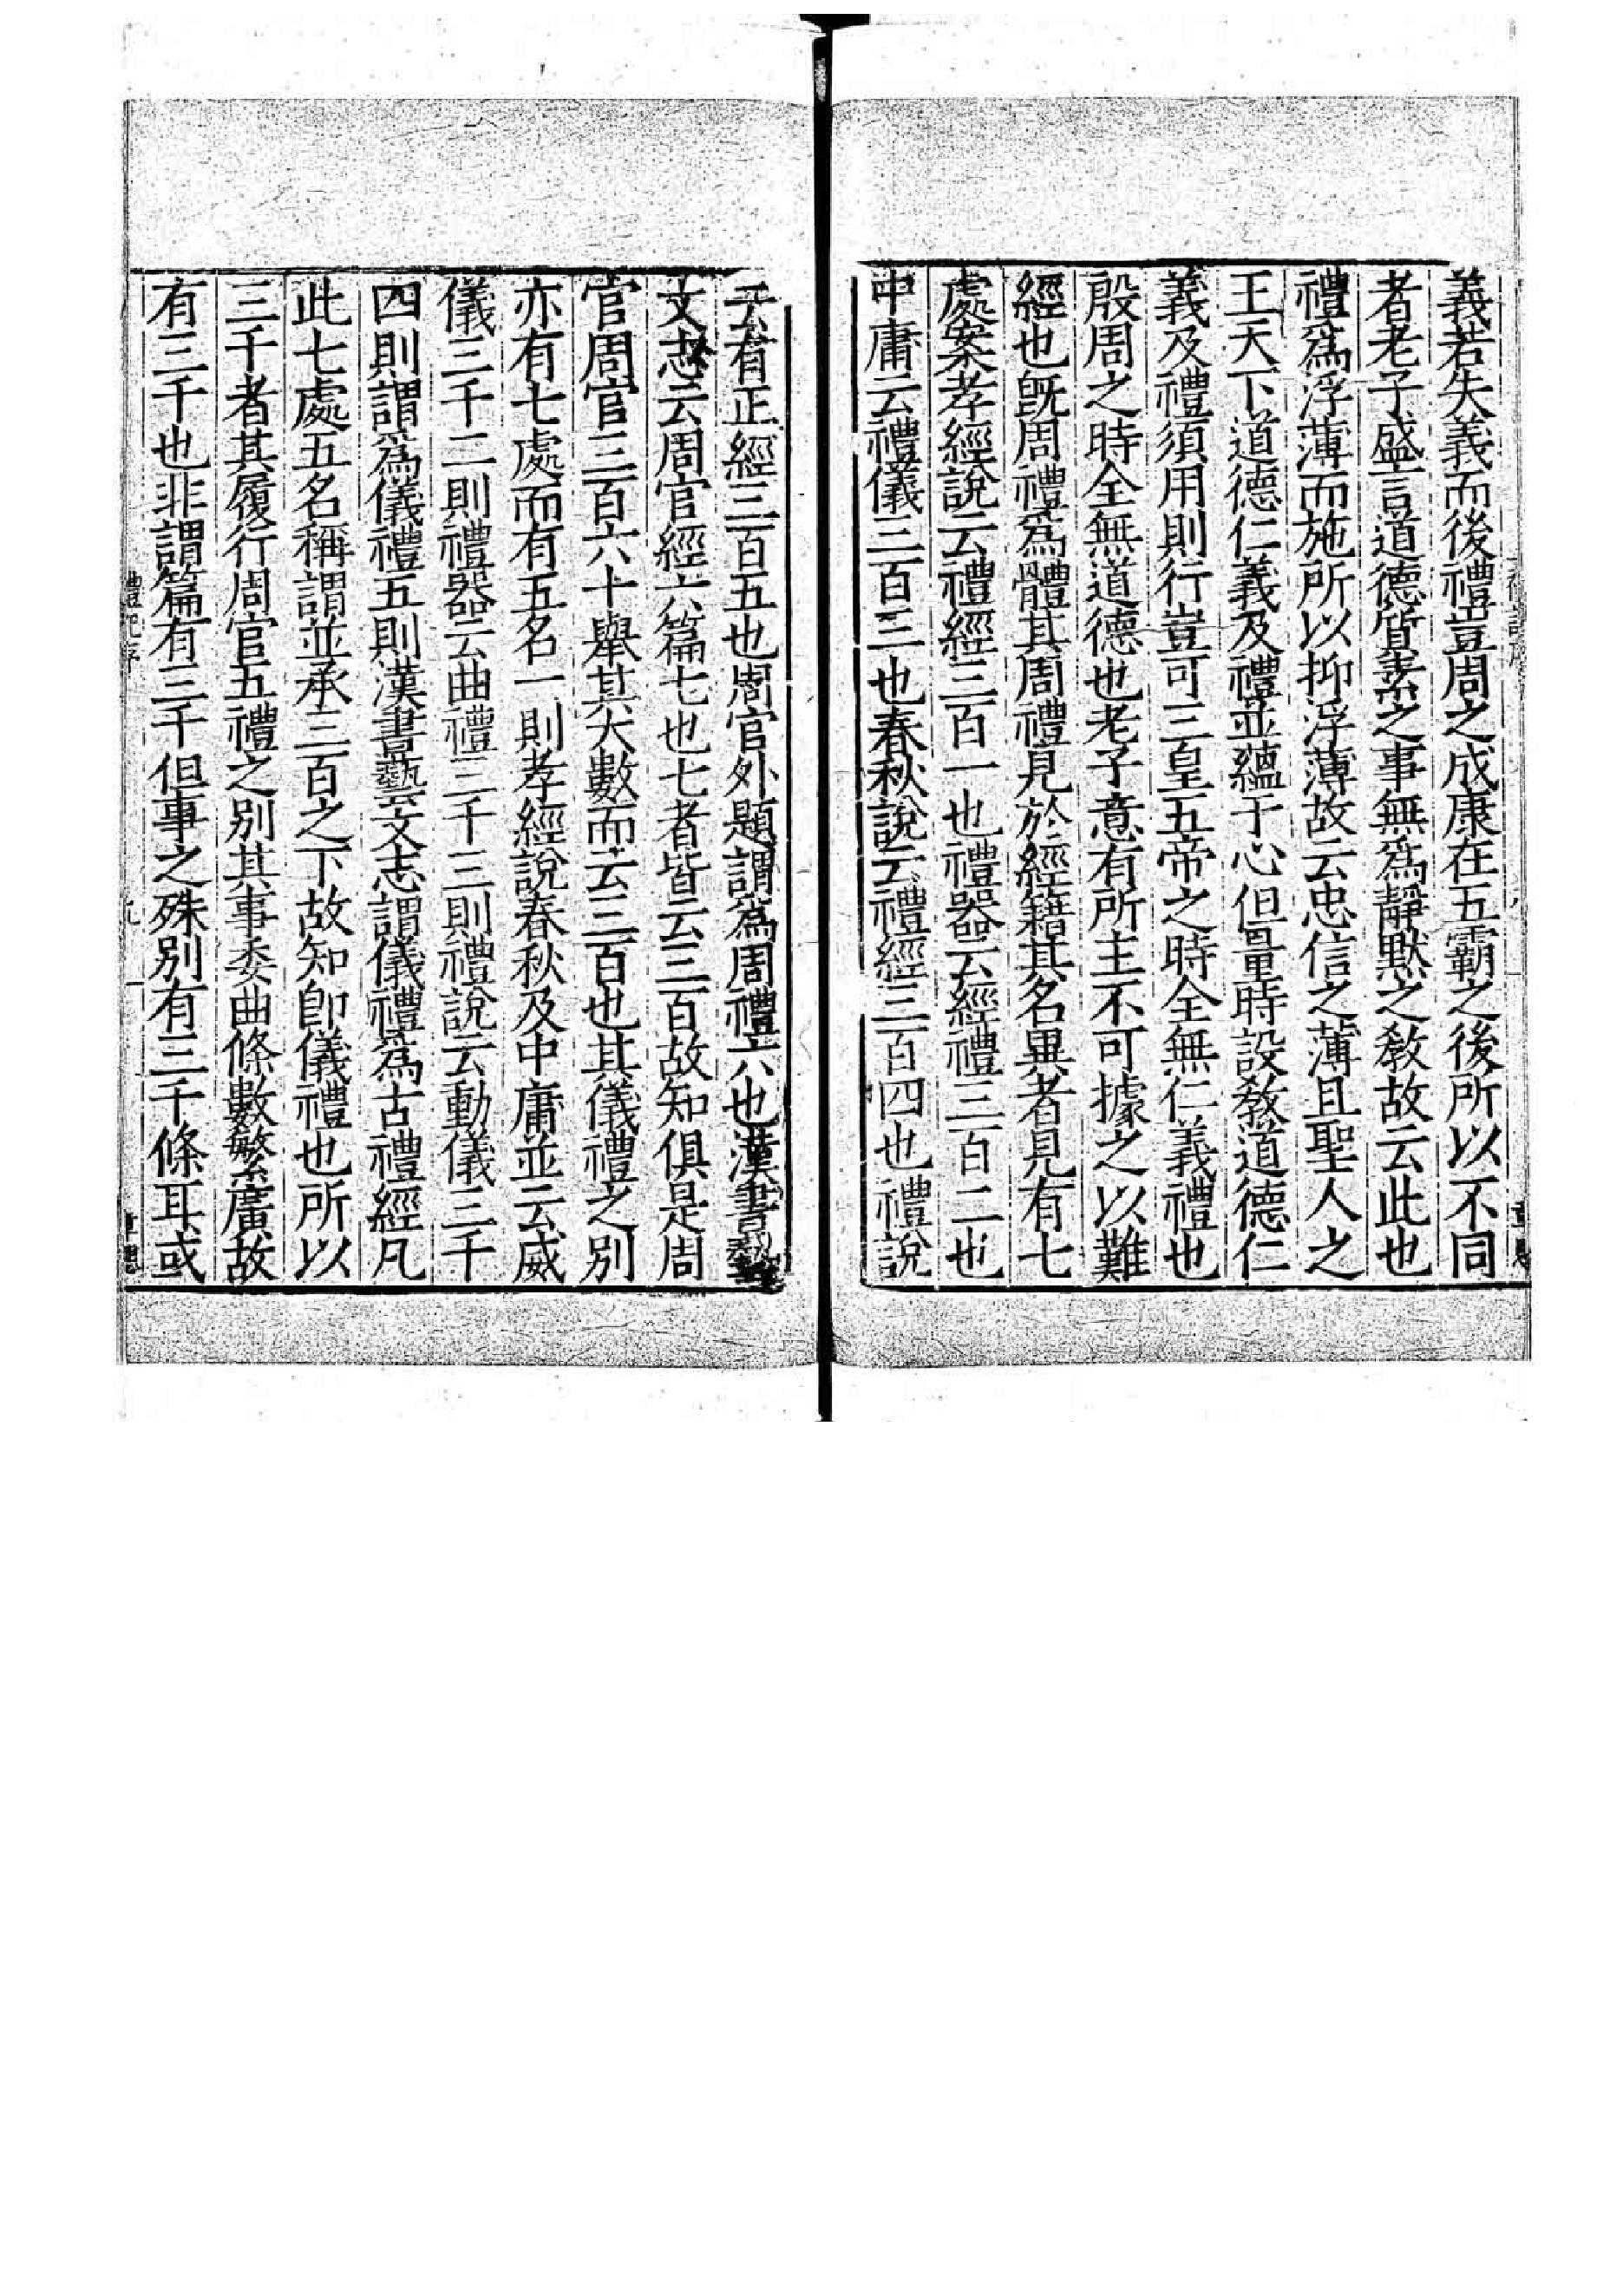 義若失義而後禮豈周之成康在五霸之後所以不同
者老子盛言道德質素之事無爲靜默之教故云此也
禮爲浮薄而施所以抑浮薄故云忠信之薄且聖人之
王天下道德仁義及禮並蘊于心但量時設教道德仁
義及禮須用則行豈可三皇五帝之時全無仁義禮也
殷周之時全無道德也老子意有所主不可據之以難
經也旣周禮爲體其周禮見於經籍其名異者見有七
處案孝經說云禮經三百一也禮器云經禮三百二也
中庸云禮儀三百三也春秋說云禮經三百四也禮說
云有正經三百五也周官外題謂爲周禮六也漢書藝
文志云周官經六篇七也七者皆云三百故知俱是周
官周官三百六十舉其大數而云三百也其儀禮之別
亦有七處而有五名一則孝經說春秋及中庸並云威
儀三千二則禮器云曲禮三千三則禮說云動儀三千
四則謂爲儀禮五則漢書藝文志謂儀禮爲古禮經凡
此七處五名稱謂並承三百之下故知卽儀禮也所以
三千者其履行周官五禮之別其事委曲條數繁廣故
有三千也非謂篇有三千但事之殊別有三千條耳或
禮記序
九